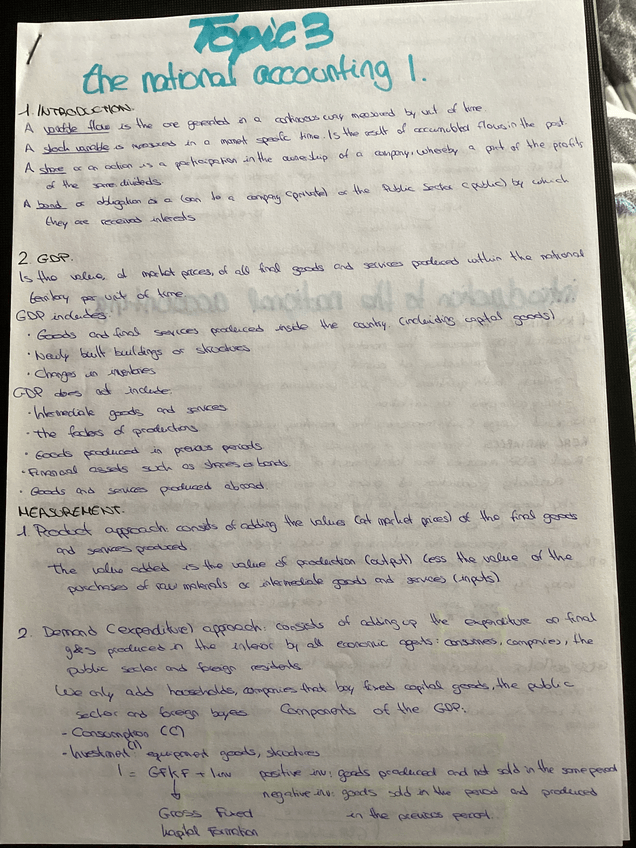 Topic 3
the national accounting 1.
1. INTRODUCTION.
A variable flow is the one generated in a continuous way measured by unit of time.
A stock variable is measured in a moment specific time. Is the result of accumulated flows in the past.
A share or an action is a participation in the ownership of a company, whereby a part of the profits
of the same dividends.
A bond or obligation is a loan to a company (private) or the Public Sector (public) by which
they are received interests.
2. GDP.
Is the value, at market prices, of all final goods and services produced within the national
territory per unit of time.
GDP includes:
· Goods and final services produced inside the country (including capital goods)
· Newly built buildings or structures
· Changes in inventories
GDP does not include:
· Intermediate goods and services
· The factors of productions
· Goods produced in previous periods
· Financial assets such as shares or bonds.
· Goods and services produced abroad.
MEASUREMENT.
1. Product approach: consists of adding the values (at market prices) of the final goods
and services produced.
The value added is the value of production (output) less the value of the
purchases of raw materials or intermediate goods and services (inputs)
2. Demand (expenditure) approach: consists of adding up the expenditure on final
g&s produced in the interior by all economic agents: consumers, companies, the
public sector and foreign residents
We only add households, companies that buy fixed capital goods, the public
sector and foreign buyers Components of the GDP:
- Consumption (C)
- Investment (I) equipment goods, structures
I = GFKF + Inv positive inv: goods produced and not sold in the same period
negative inv: goods sold in the period and produced
Gross Fixed in the previous period.
Kapital Formation